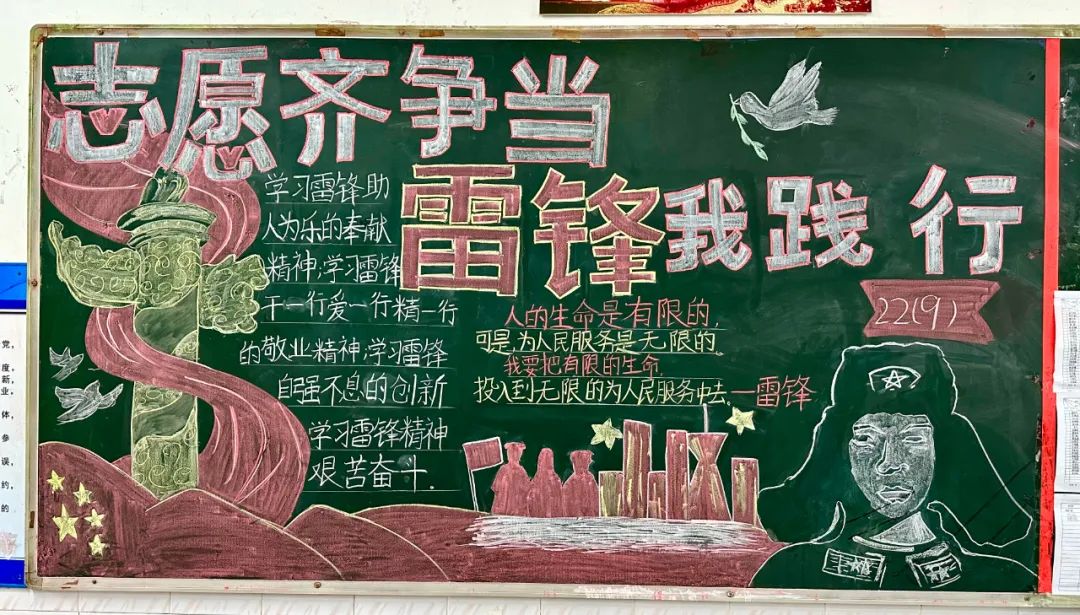 志愿齐争当
雷锋我践行
学习雷锋助
人为乐的奉献
精神;学习雷锋
干一行爱一行精一行
的敬业精神;学习雷锋
自强不息的创新
学习雷锋精神
艰苦奋斗.
人的生命是有限的,
可是,为人民服务是无限的。
我要把有限的生命,
投入到无限的为人民服务中去.—雷锋
22(9)
党,
度,
新,
业,
体,
参
误,
约,
的